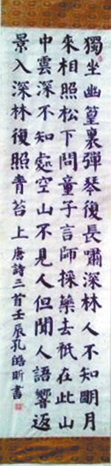 獨坐幽篁裏彈琴復長嘯深林人不知明月
來相照松下問童子言師採藥去祇在此山
中雲深不知處空山不見人但聞人語響返
景入深林復照青苔上 唐詩三首壬辰孔皓昕書